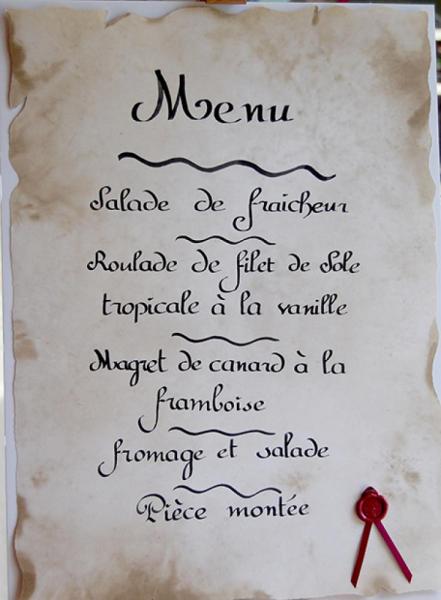 Menu
Salade de fraicheur
Roulade de filet de Sole
tropicale à la vanille
Magret de canard à la
framboise
fromage et salade
Pièce montée